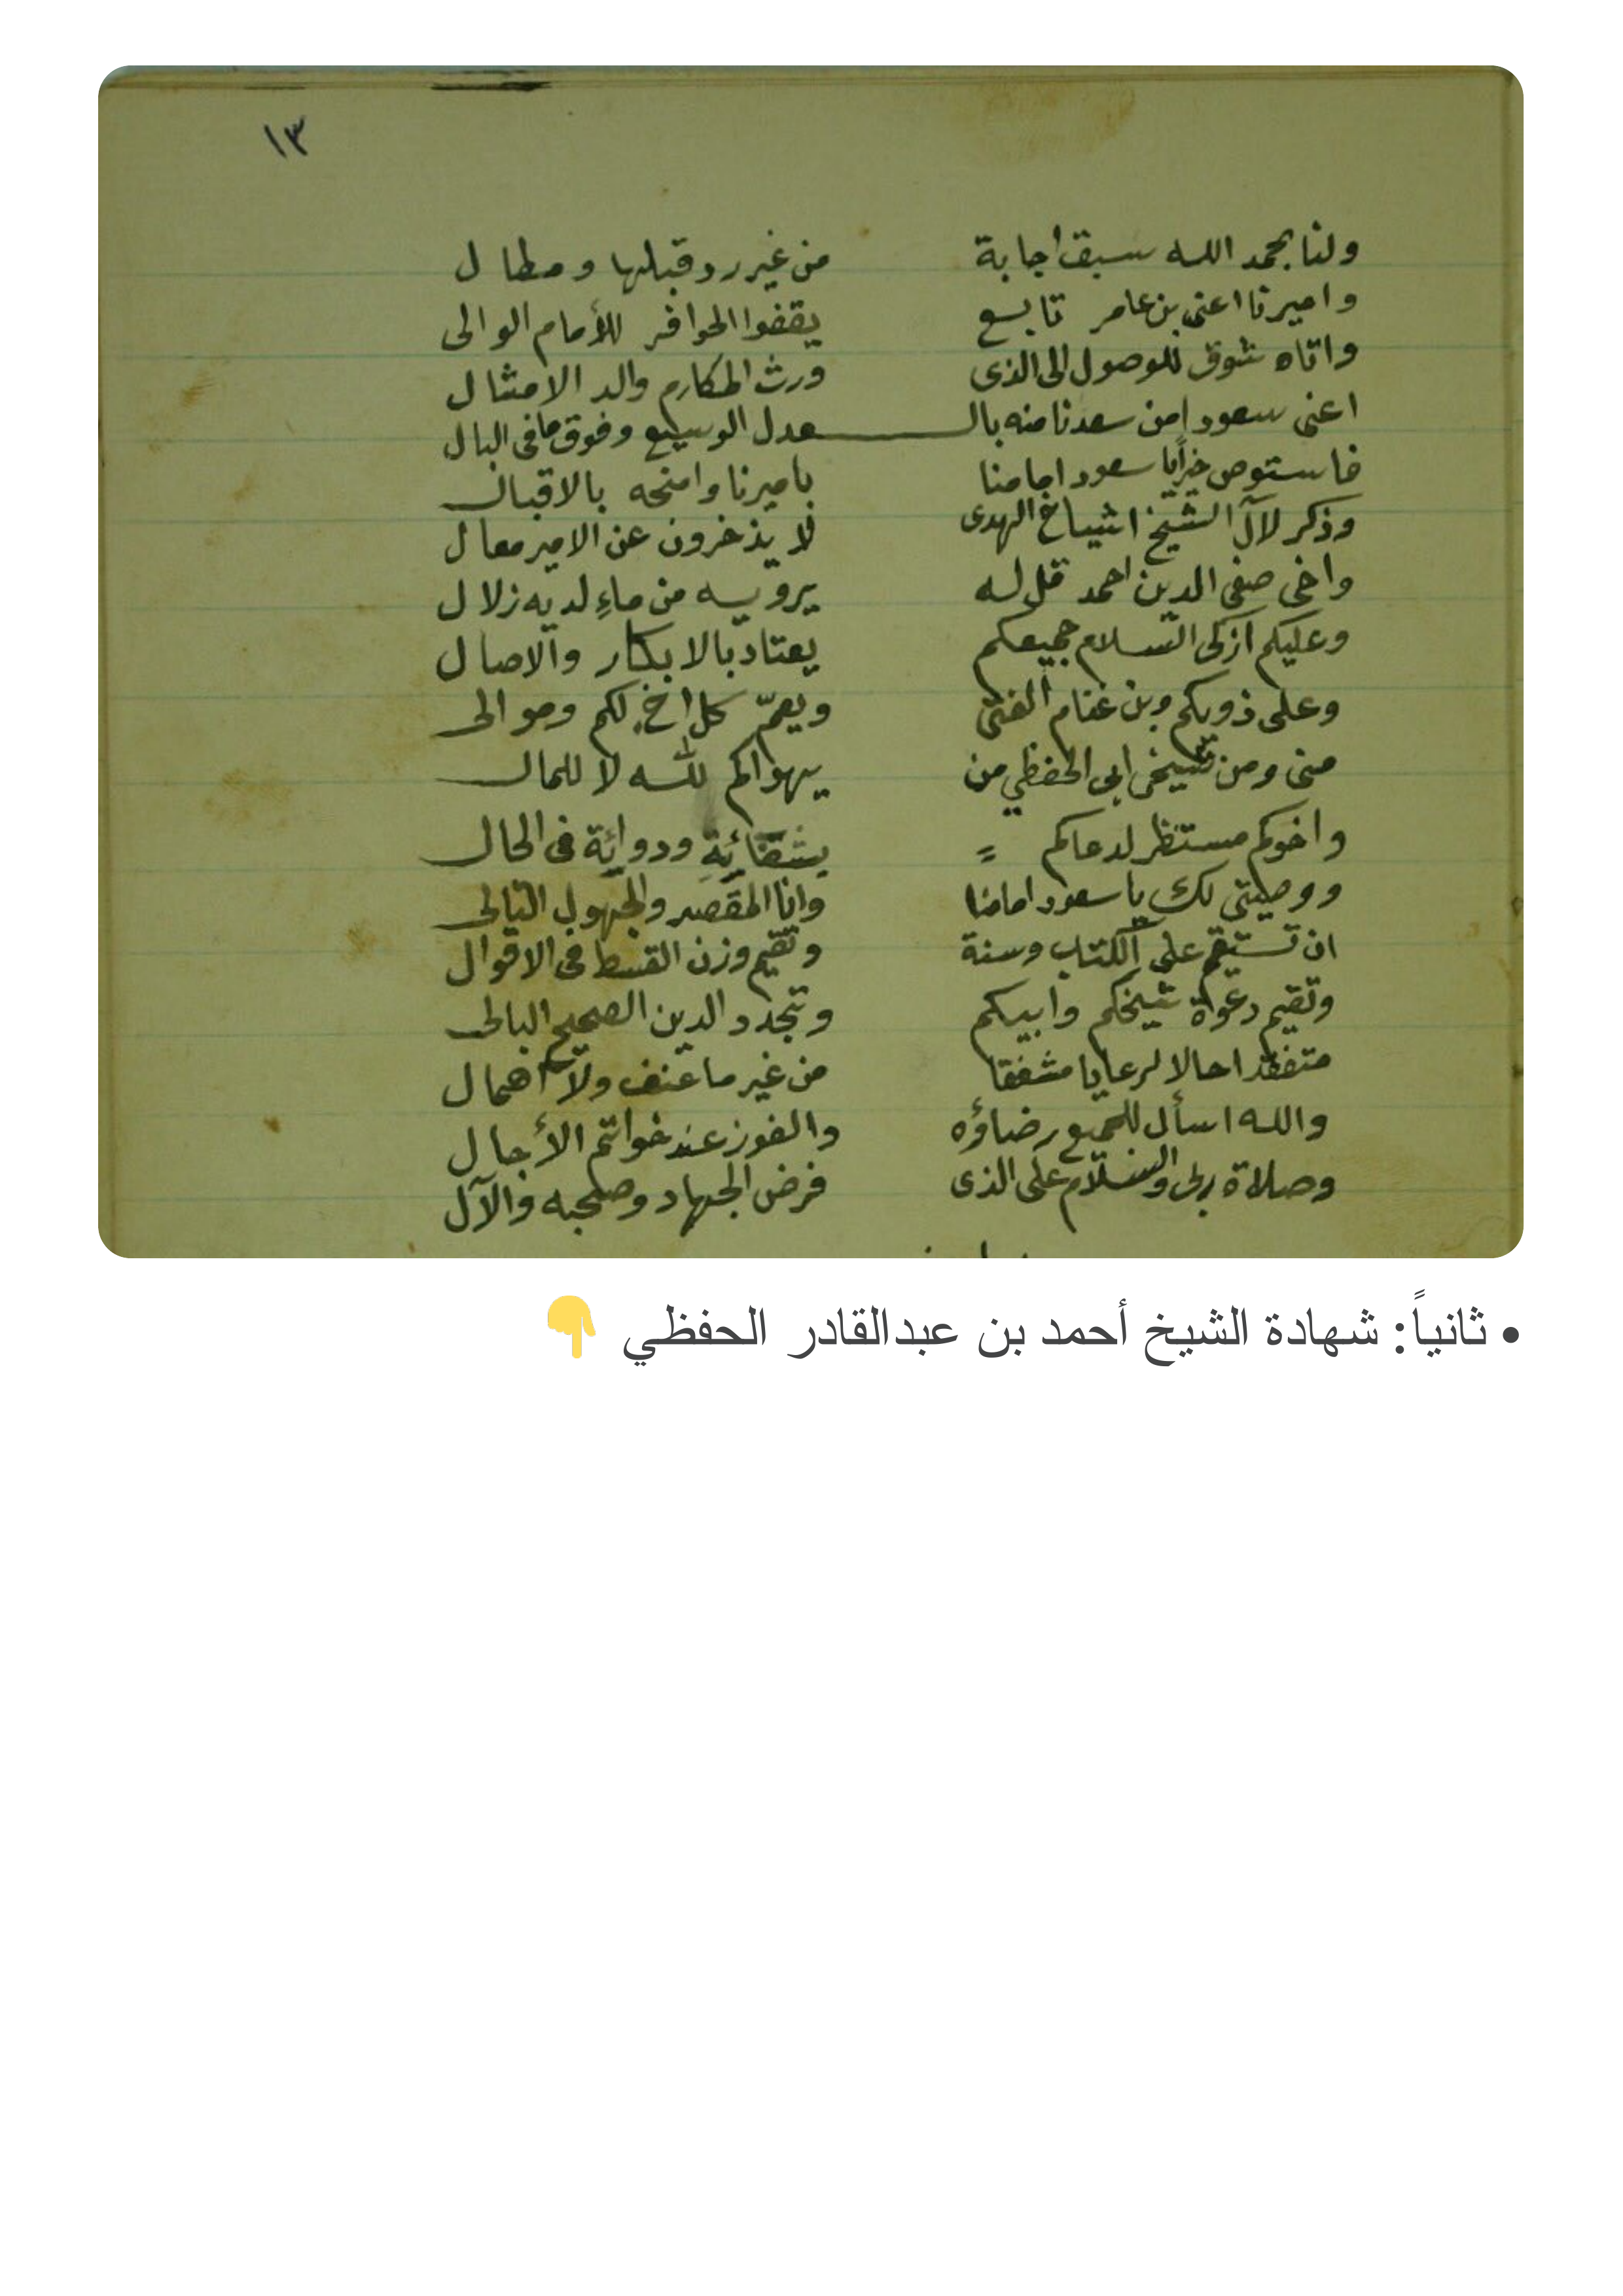 ١٣
ولنا بحمد الله سبق اجابة من غير رد قبلها ومطال
واميرنا اعنى بن عامر تابع يقفوا الحوافر للأمام الوالى
واتاه شوق للوصول الى الذى ورث المكارم والد الامثال
اعنى سعود من سعدنا منه بالـ ـعدل الوسيع وفوق ما فى البال
فاستوص خيرا يا سعود امامنا باميرنا وامنحه بالاقبال
وذكر لآل الشيخ اشياخ الهدى لا يذخرون عن الامير معال
واخى صفى الدين احمد قل له يرويه من ماءِ لديه زلال
وعليكم ازكى السلام جميعكم يعتاد بالابكار والاصال
وعلى ذويكم وبن غنام الفتى ويعمّ كل اخ لكم وموالى
منى ومن شيخى ابى الحفظي من يهواكم لله لا للمال
واخوكم مستنظر لدعاكم = ودوائة فى الحال
ووصيتى لك يا سعود امامنا وانا المقصر والجهول التالى
ان تستقم على الكتاب وسنة وتقيم وزن القسط فى الاقوال
وتقيم دعوة شيخكم وابيكم وتجدد الدين الصحيح البالى
متفقدا حالا لرعايا مشفقا من غير ما عنف ولا اهمال
والله اسأل للجميع رضاؤه والفوز عند خواتم الأجال
وصلاة ربى والسلام على الذى فرض الجهاد وصحبه والآل
• ثانياً: شهادة الشيخ أحمد بن عبدالقادر الحفظي 👇